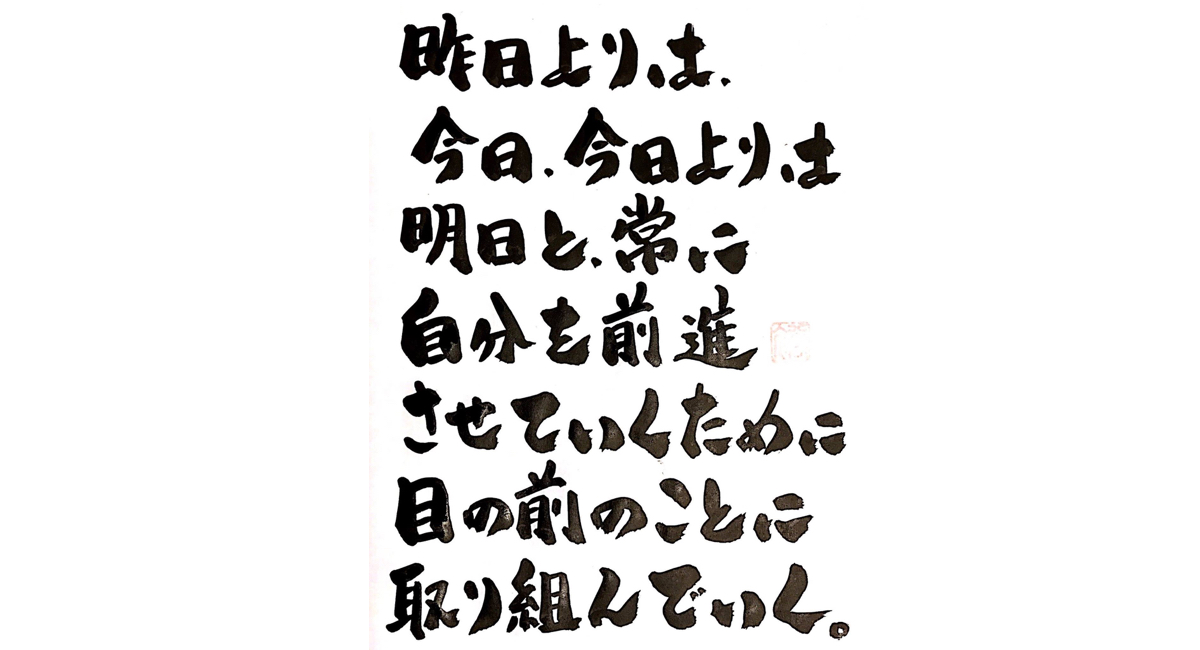 昨日よりは、
今日、今日よりは
明日と、常に
自分を前進
させていくために
目の前のことに
取り組んでいく。